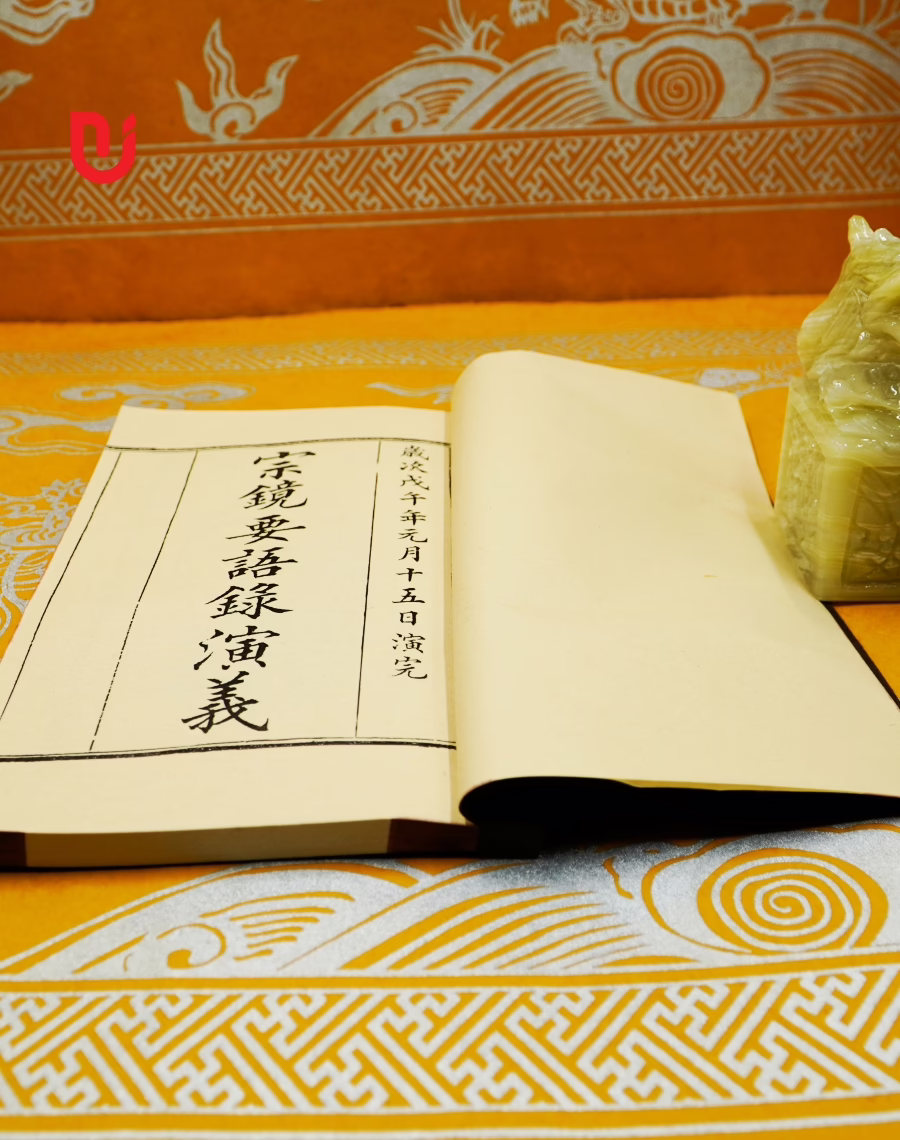 歲次戊午年元月十五日演完
宗鏡要語錄演義